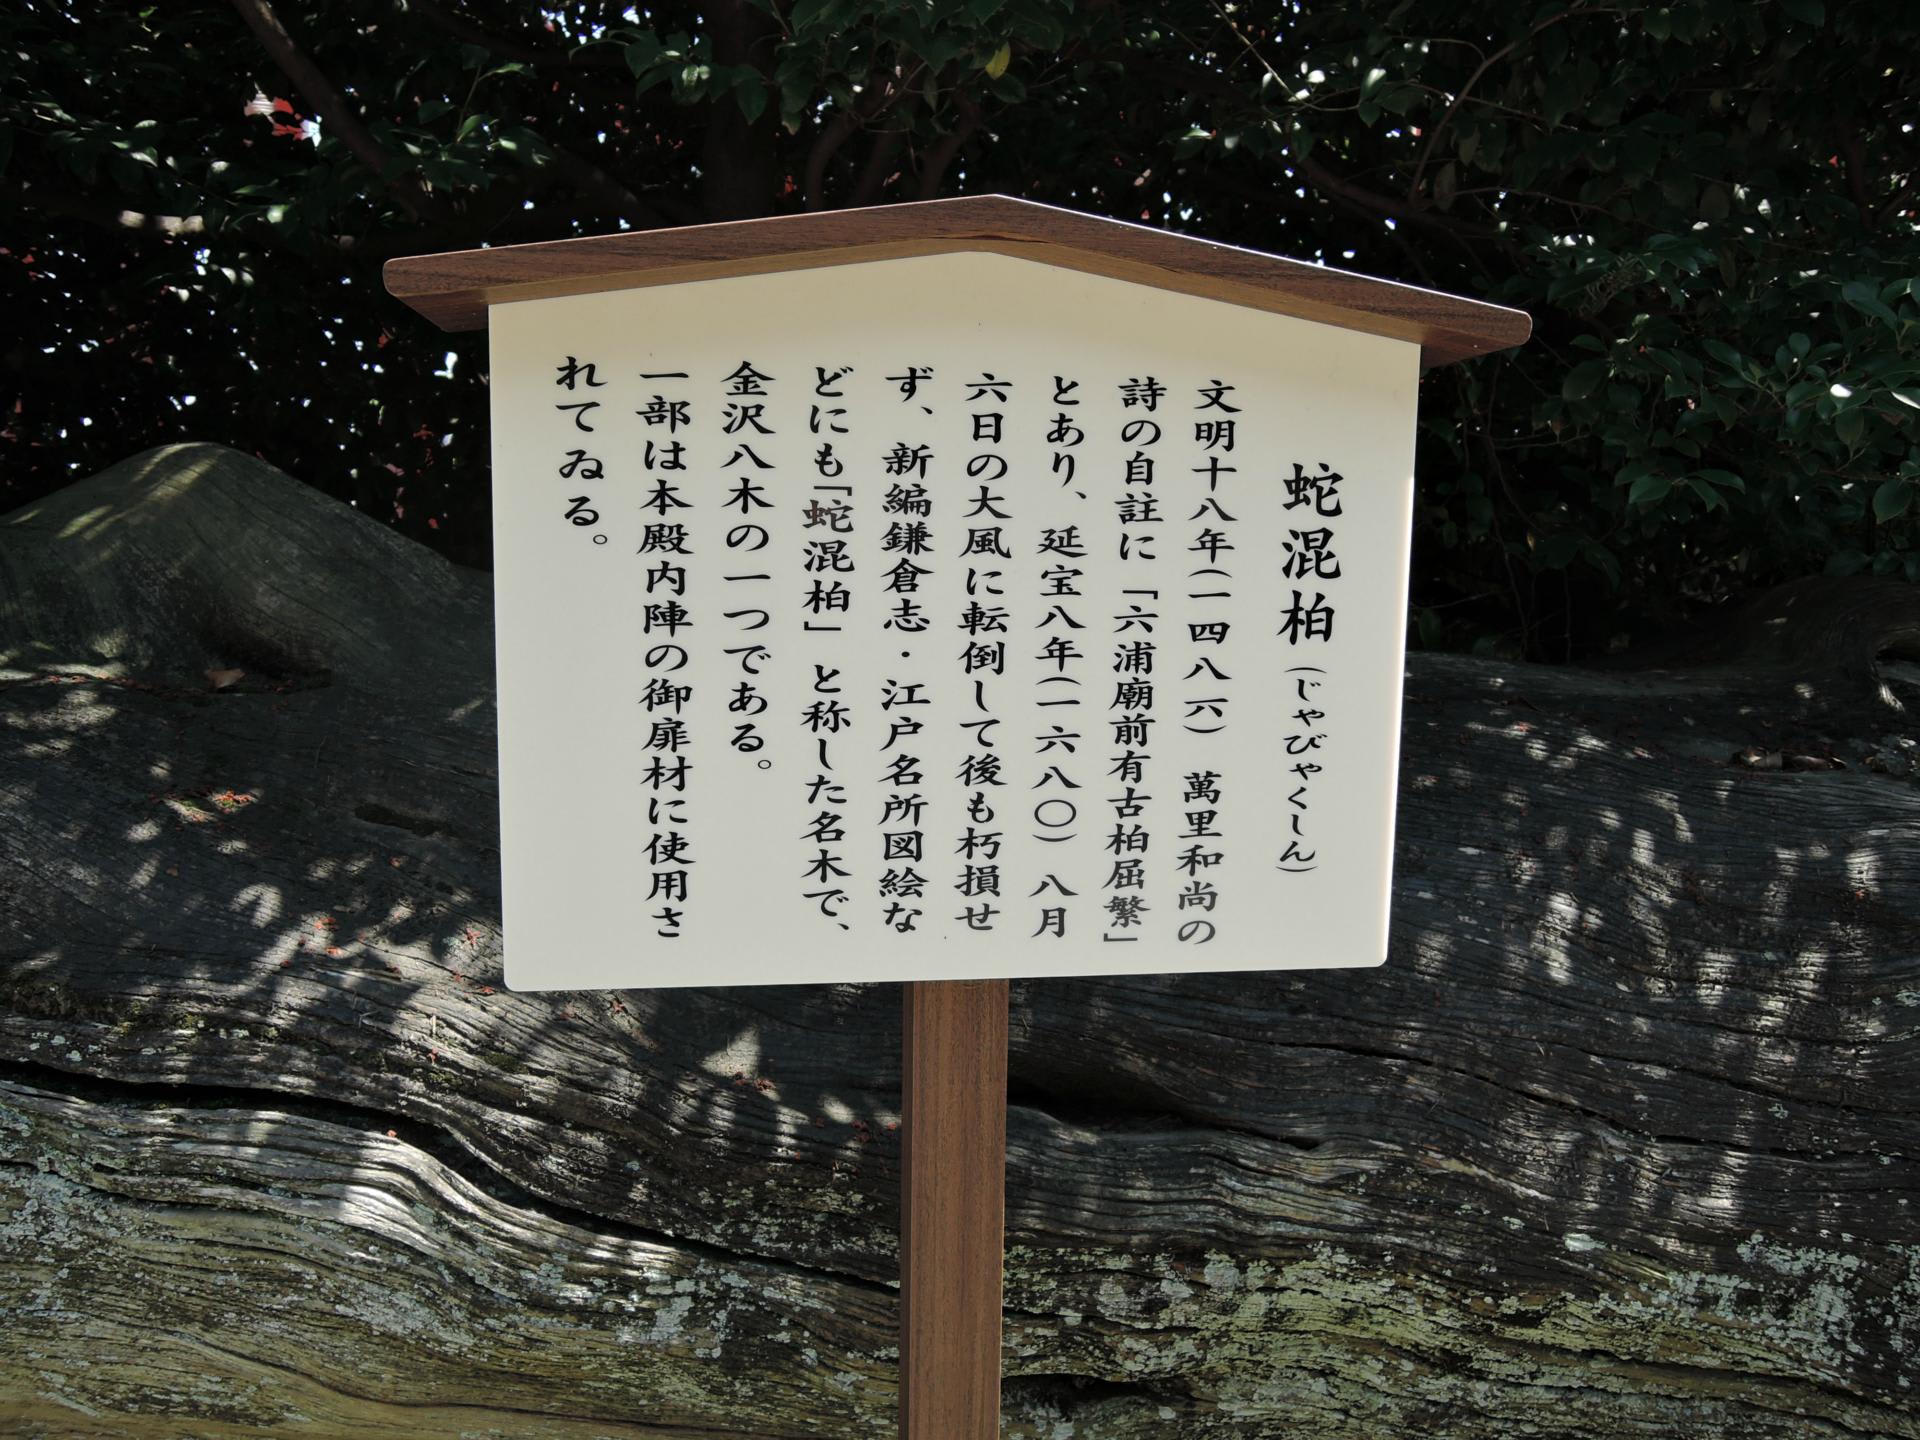 蛇混柏(じゃびゃくしん)
文明十八年(一四八六) 萬里和尚の
詩の自註に「六浦廟前有古柏屈繁」
とあり、延宝八年(一六八〇)八月
六日の大風に転倒して後も朽損せ
ず、新編鎌倉志・江戸名所図絵な
どにも「蛇混柏」と称した名木で、
金沢八木の一つである。
一部は本殿内陣の御扉材に使用さ
れてゐる。